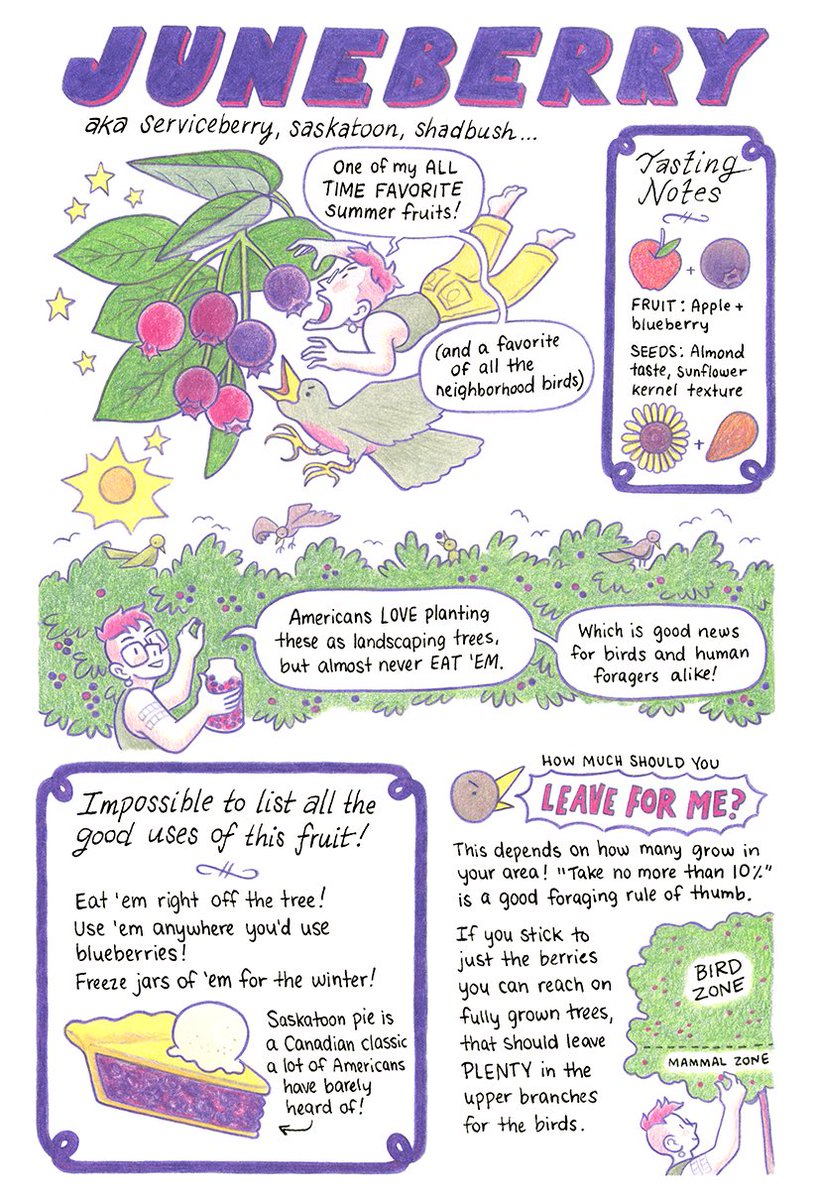 JUNEBERRY
aka serviceberry, saskatoon, shadbush...
One of my ALL
TIME FAVORITE
summer fruits!
(and a favorite
of all the
neighborhood birds)
Tasting
Notes
+
FRUIT: Apple +
blueberry
SEEDS: Almond
taste, sunflower
kernel texture
+
Americans LOVE planting
these as landscaping trees,
but almost never EAT 'EM.
Which is good news
for birds and human
foragers alike!
Impossible to list all the
good uses of this fruit!
Eat 'em right off the tree!
Use 'em anywhere you'd use
blueberries!
Freeze jars of 'em for the winter!
Saskatoon pie is
a Canadian classic
a lot of Americans
have barely
heard of!
HOW MUCH SHOULD YOU
LEAVE FOR ME?
This depends on how many grow in
your area! "Take no more than 10%"
is a good foraging rule of thumb.
If you stick to
just the berries
you can reach on
fully grown trees,
that should leave
PLENTY in the
upper branches
for the birds.
BIRD
ZONE
MAMMAL ZONE